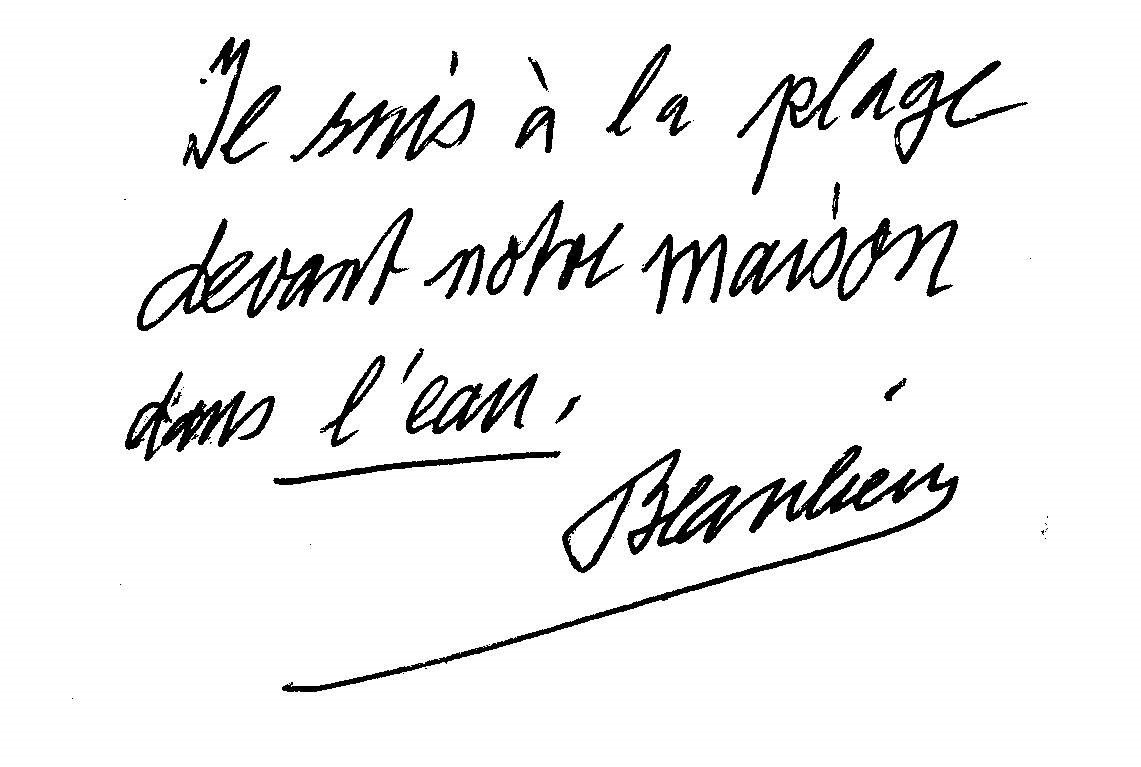 Je suis à la plage
devant notre maison
dans l'eau.
Beaulieu